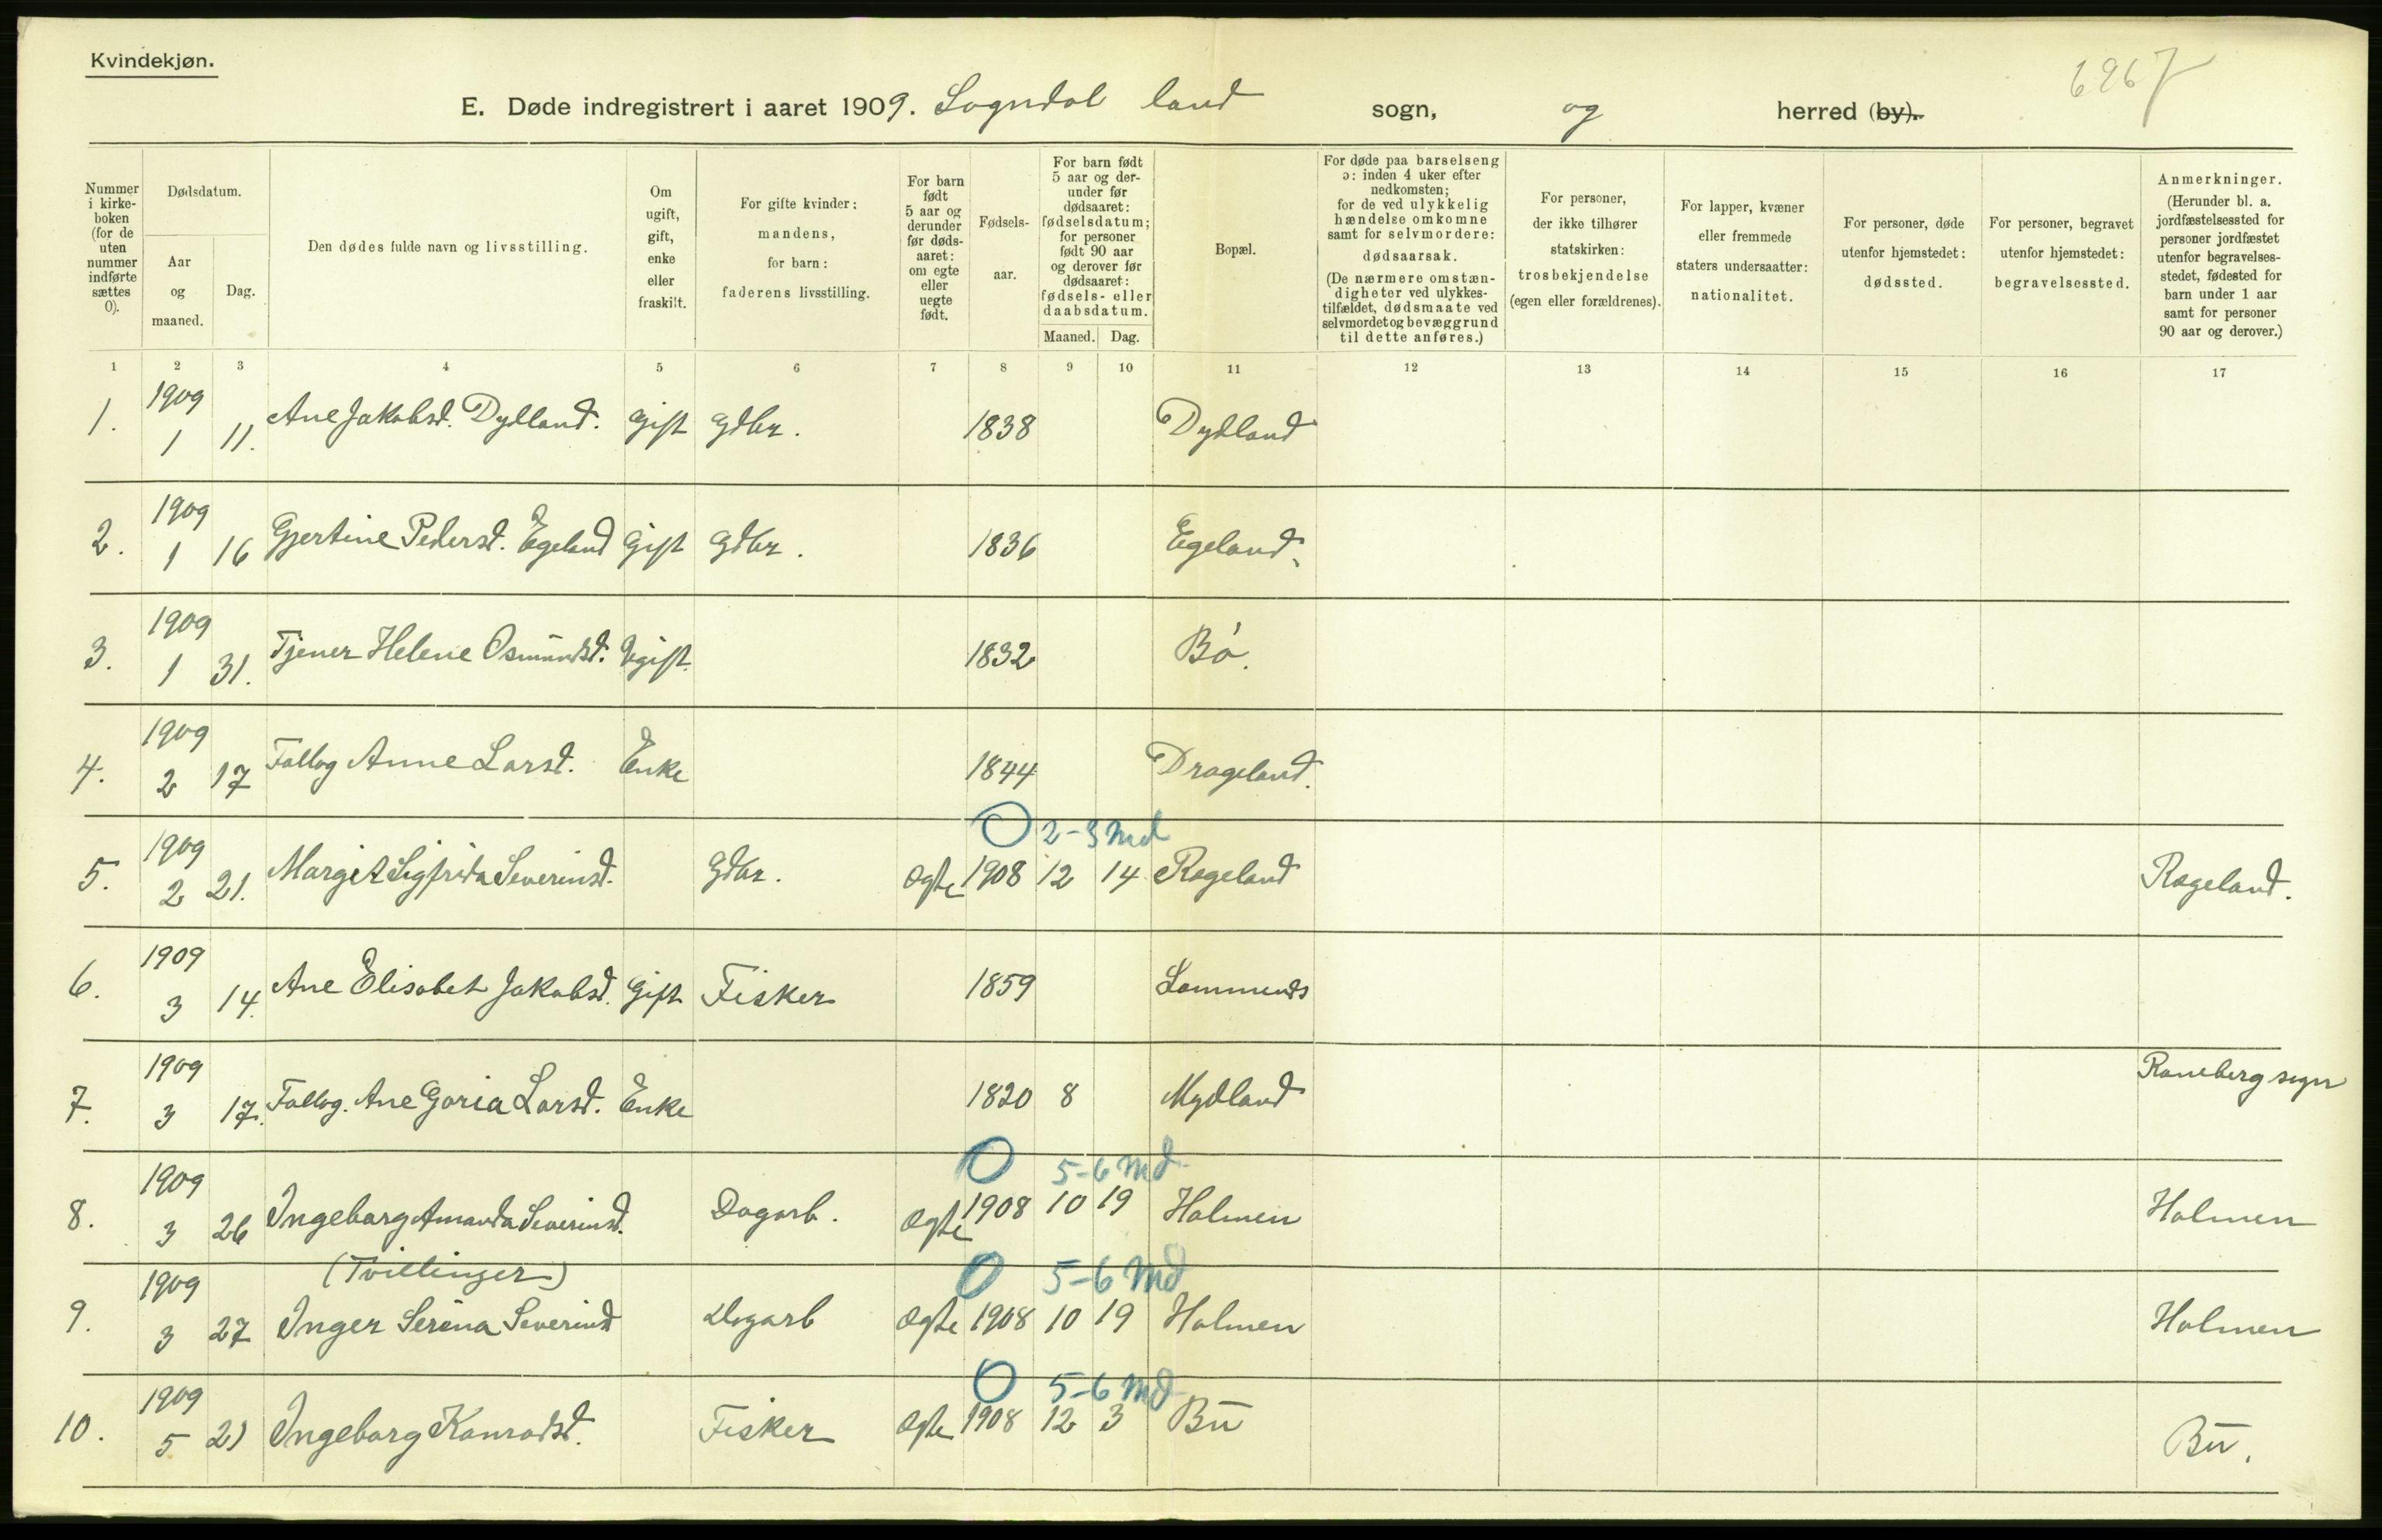 Kvindekjøn.
6267
E. Døde indregistrert i aaret 1909. Sogndal land sogn, og herred (by).
Nummer i kirkeboken (for de uten nummer indførte sættes 0).
Dødsdatum.
Aar og maaned.
Dag.
Den dødes fulde navn og livsstilling.
Om ugift, gift, enke eller fraskilt.
For gifte kvinder: mandens, for barn: faderens livsstilling.
For barn født 5 aar og derunder før dødsaaret: om egte eller uegte født.
Fødselsaar.
For barn født 5 aar og derunder før dødsaaret: fødselsdatum; for personer født 90 aar og derover før dødsaaret: fødsels- eller daabsdatum.
Maaned. Dag.
Bopæl.
For døde paa barselseng ɔ: inden 4 uker efter nedkomsten; for de ved ulykkelig hændelse omkomne samt for selvmordere: dødsaarsak. (De nærmere omstændigheter ved ulykkestilfældet, dødsmaate ved selvmordet og bevæggrund til dette anføres.)
For personer, der ikke tilhører statskirken: trosbekjendelse (egen eller forældrenes).
For lapper, kvæner eller fremmede staters undersaatter: nationalitet.
For personer, døde utenfor hjemstedet: dødssted.
For personer, begravet utenfor hjemstedet: begravelsessted.
Anmerkninger. (Herunder bl. a. jordfæstelsessted for personer jordfæstet utenfor begravelsesstedet, fødested for barn under 1 aar samt for personer 90 aar og derover.)
1 2 3 4 5 6 7 8 9 10 11 12 13 14 15 16 17
1. 1909 1 11. Ane Jakobsd. Dydland. Gift Gdbr. 1838 Dydland
2. 1909 1 16 Gjertine Pedersd. Egeland Gift Gdbr. 1836 Egeland.
3. 1909 1 31. Tjener Helene Osmundsd. Ugift. 1832 Bö.
4. 1909 2 17 Fattig Anne Larsd. Enke 1844 Drageland.
0 2-3 Md
5. 1909 2 21. Margit Sigfrida Severinsd. Gdbr. Ægte 1908 12 14 Rageland Rageland.
6. 1909 3 14. Ane Elisabet Jakobsd. Gift Fisker 1859
7. 1909 3 17. Fattig. Ane Goria Larsd. Enke 1820 8 Mydland sogn
0 5-6 Md
8. 1909 3 26 Ingeborg Amanda Severinsd. Dagarb. Ægte 1908 10 19 Holmen Holmen
(Tvillinger) 0 5-6 Md
9. 1909 3 27 Inger Serina Severinsd Dagarb Ægte 1908 10 19 Holmen Holmen
0 5-6 Md
10. 1909 5 21 Ingeborg Konradsd. Fisker Ægte 1908 12 3 Bö Bö.